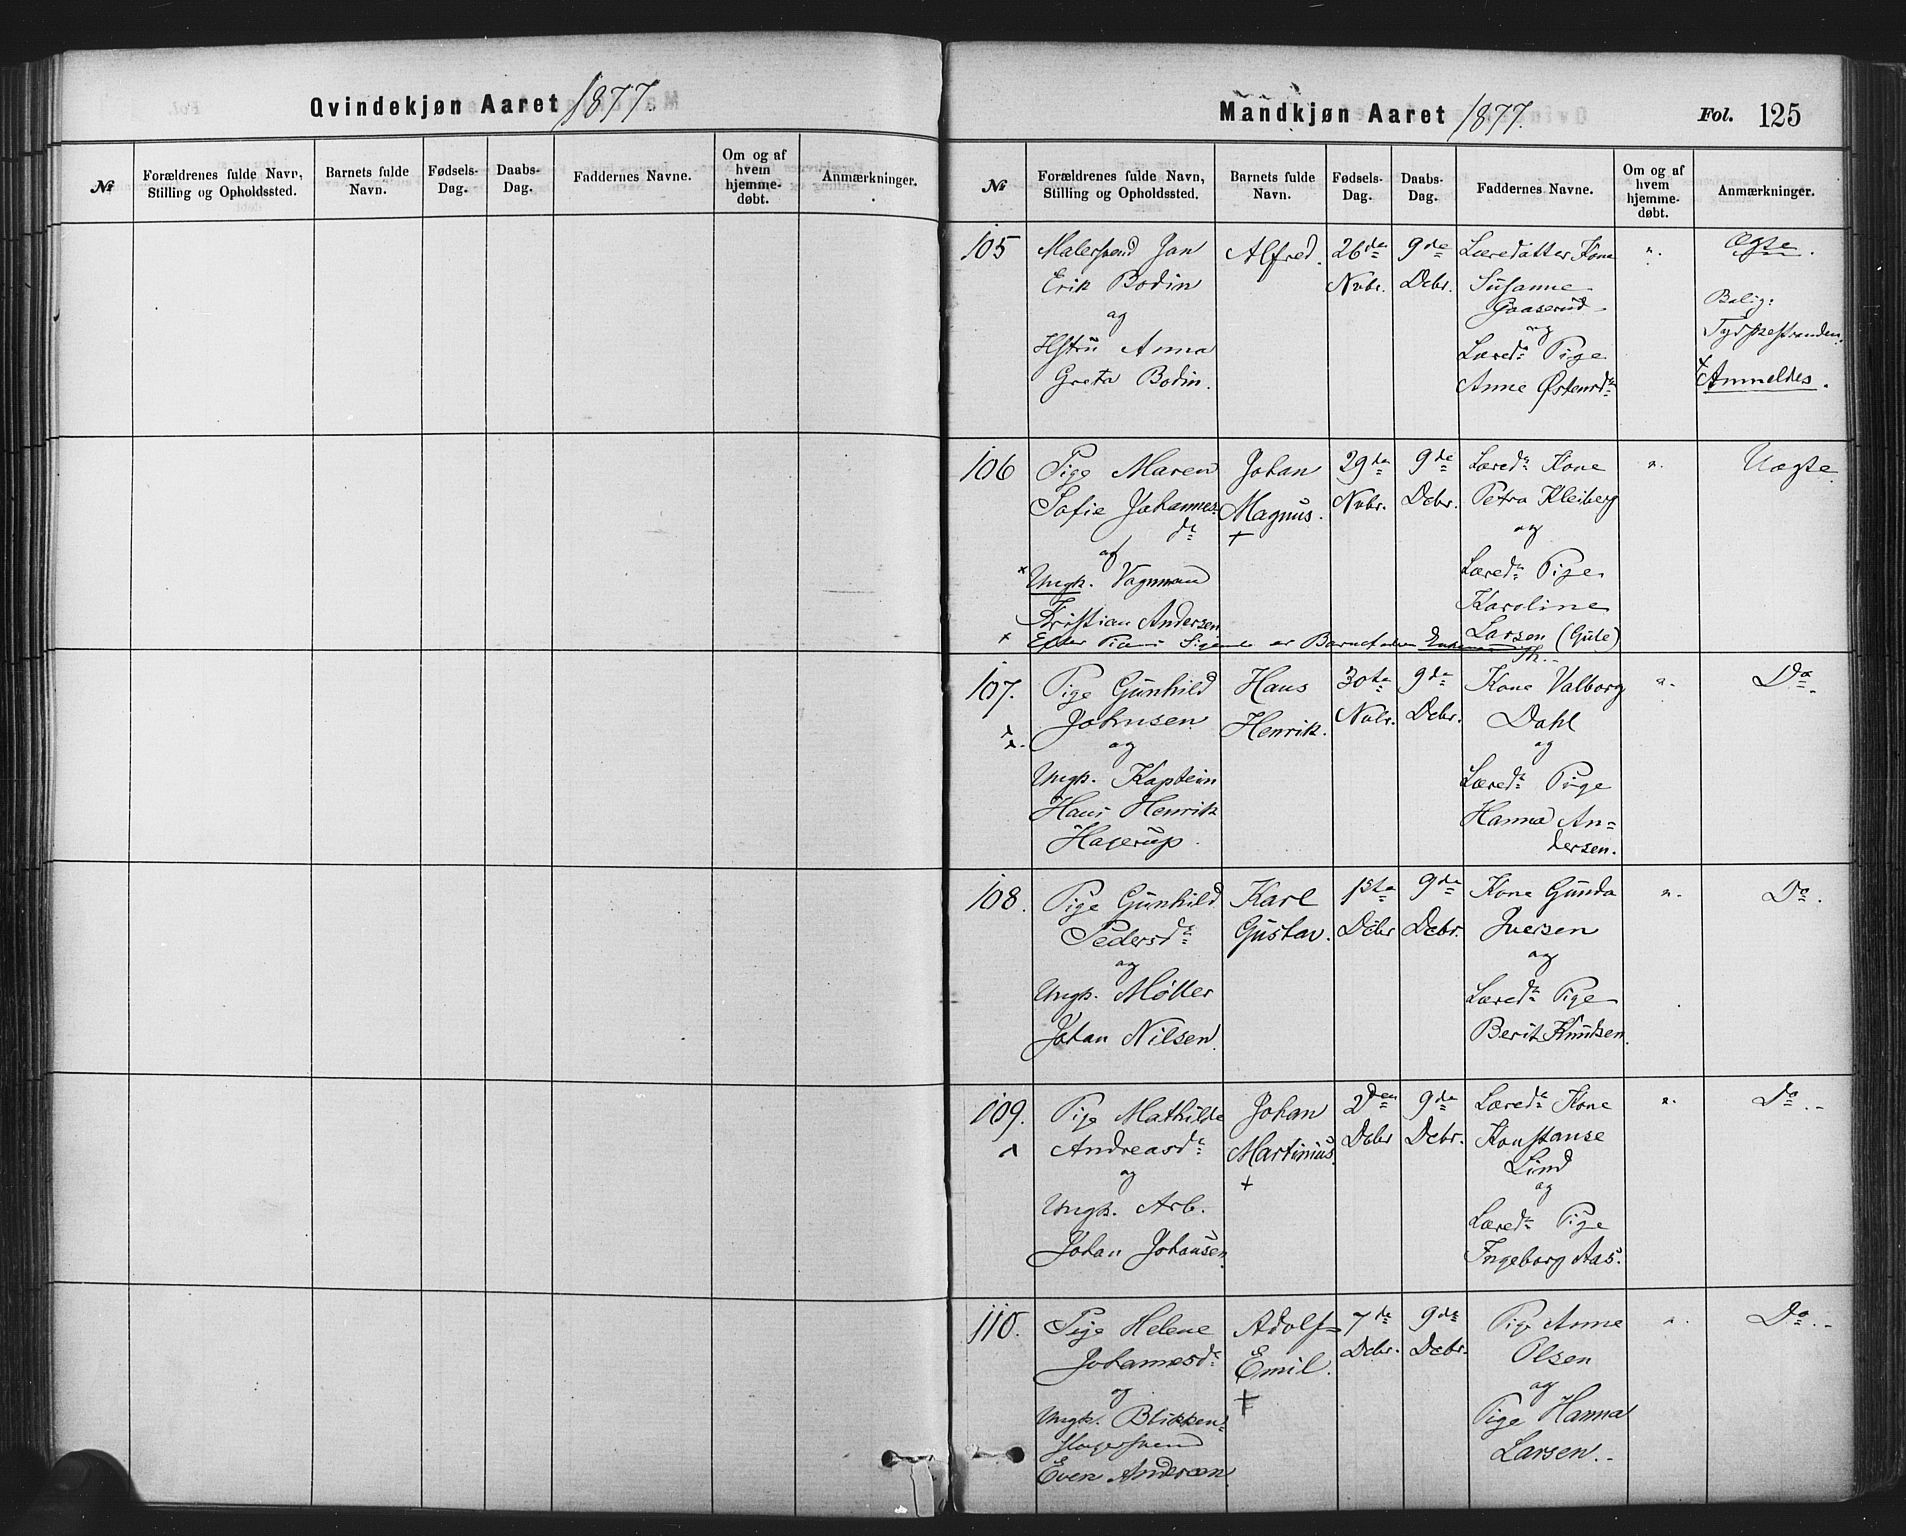 Qvindekjøn Aaret 1877.
№
Forældrenes fulde Navn, Stilling og Opholdssted.
Barnets fulde Navn.
Fødsels-Dag.
Daabs-Dag.
Faddernes Navne.
Om og af hvem hjemmedøbt.
Anmærkninger.
Mandkjøn Aaret 1877.
Fol. 125
№
Forældrenes fulde Navn, Stilling og Opholdssted.
Barnets fulde Navn.
Fødsels-Dag.
Daabs-Dag.
Faddernes Navne.
Om og af hvem hjemmedøbt.
Anmærkninger.
105
Malersvend Jan
Erik Bodin
og
Hstru Anna
Greta Bodin.
Alfred.
26de
Nvbr.
9de
Dcbr.
Læredatter Kone
Susanne
Gaaserud
og
Læred. Pige
Anne Østensd.
".
Ægte.
Bolig:
Tydskestranden.
Anmeldes.
106
Pige Maren
Sofie Johannesd.
og
× Ungk. Vognmand
Kristian Andersen
Johan
Magnus.
+
29de
Nvbr.
9de
Dcbr.
Læred. Kone
Petra Kleiberg
og
Læred. Pige
Karoline
Larsen (Gule)
".
Uægte.
× Efter Sigende er Barnefaderen
107.
Pige Gunhild
Johnsen
og
Ungk. Kaptein
Hans Henrik
Hagerup.
Hans
Henrik.
30te
Nvbr.
9de
Dcbr.
Kone Valborg
Dahl
og
Læred. Pige
Hanna An=
dersen.
".
Do.
108.
Pige Gunhild
Pedersd.
og
Ungk. Møller
Johan Nilsen.
Karl
Gustav.
1ste
Dcbr
9de
Dcbr.
Kone Gunda
Iversen
og
Læred. Pige
Berit Knudsen.
".
Do.
109.
Pige Mathilde
Andreasd.
og
Ungk. Arb.
Johan Johansen.
Johan
Martinius.
+
2den
Dcbr
9de
Dcbr.
Læred. Kone
Konstanse
Lind
og
Læred. Pige
Ingeborg Aas.
".
Do.
110.
Pige Helene
Johannesd.
og
Ungk. Blikken=
slagersvend
Even Andersen
Adolf=
Emil.
+
7de
Dcbr.
9de
Dcbr.
Pige Anne
Olsen
og
Pige Hanna
Larsen.
".
Do.